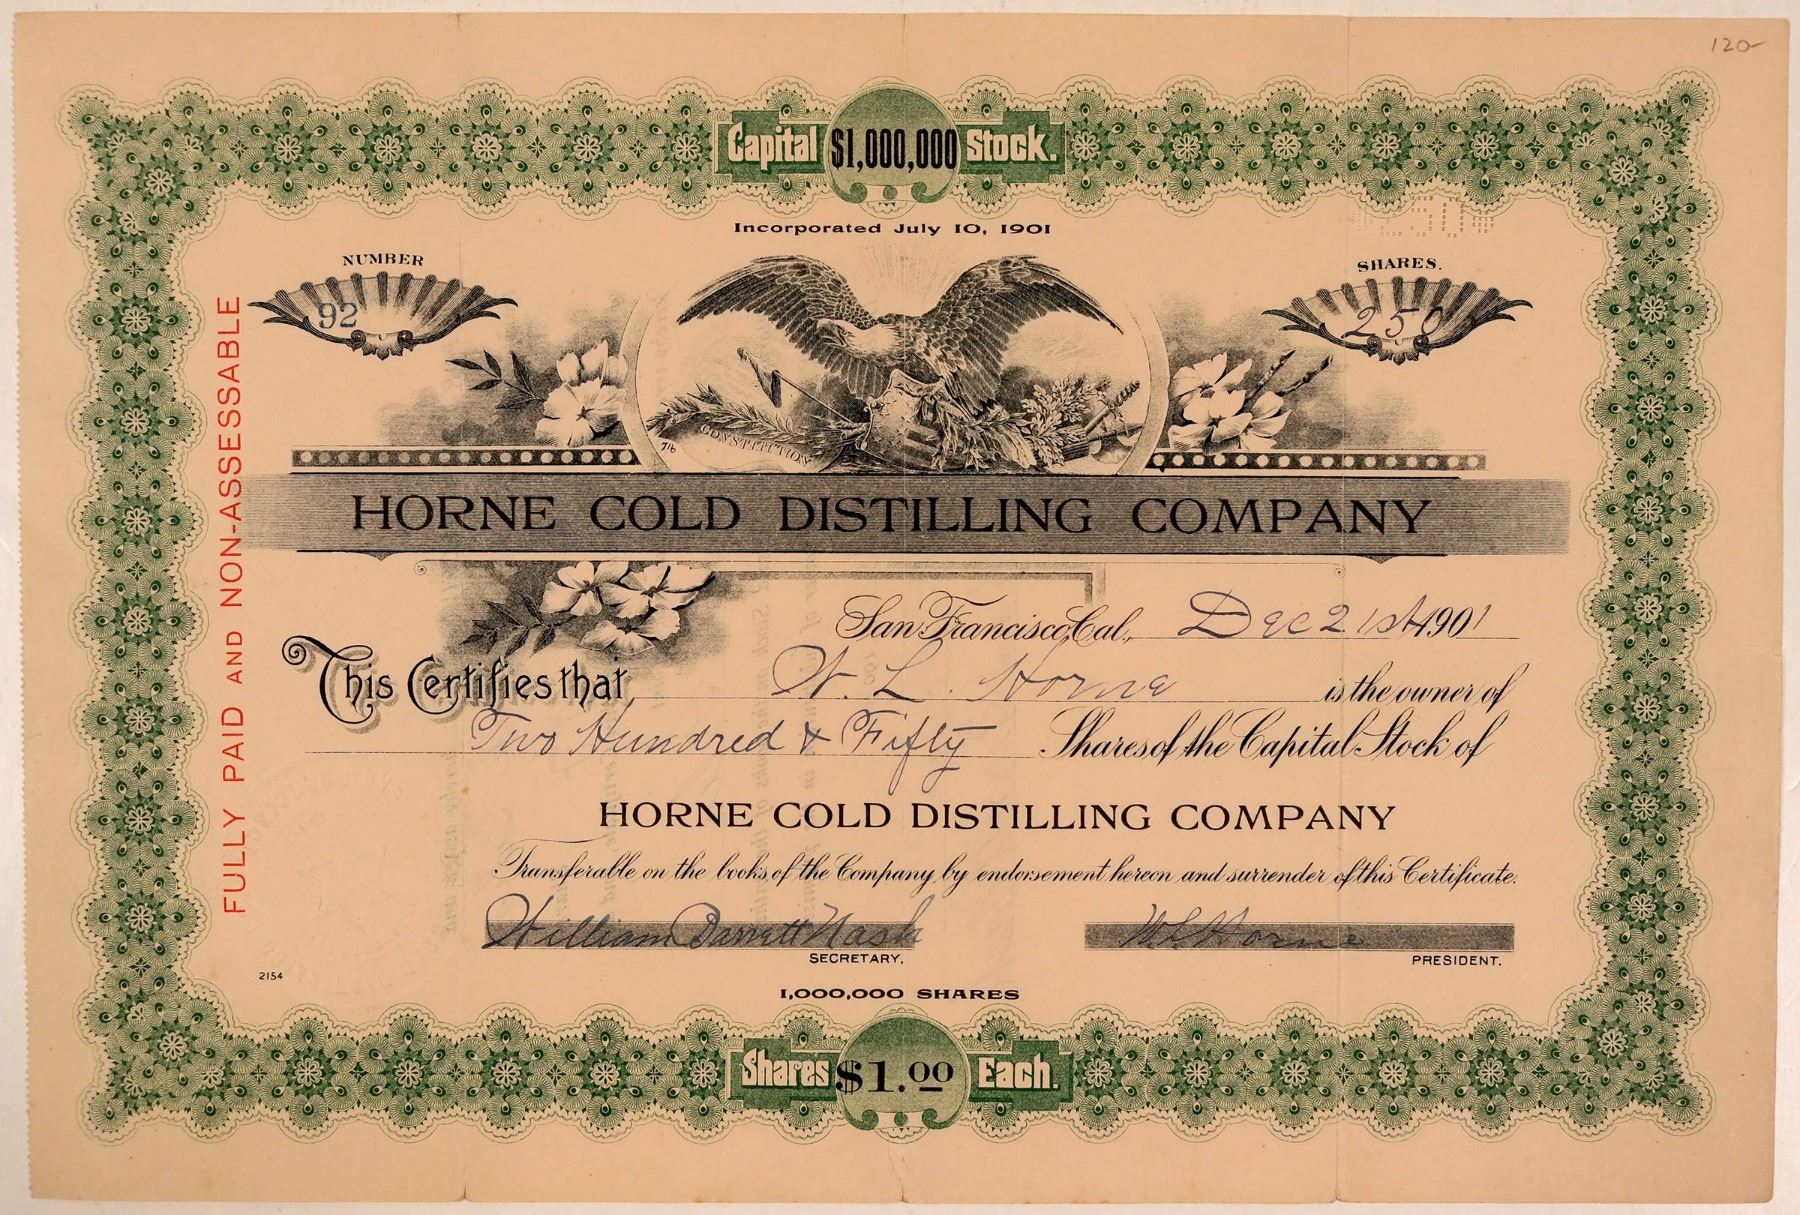 120-
Capital $1,000,000 Stock.
Incorporated July 10, 1901
NUMBER
92
SHARES.
250
CONSTITUTION
HORNE COLD DISTILLING COMPANY
San Francisco, Cal., Dec 21st 1901
This Certifies that W. L. Horne is the owner of
Two Hundred & Fifty Shares of the Capital Stock of
HORNE COLD DISTILLING COMPANY
Transferable on the books of the Company by endorsement hereon and surrender of this Certificate.
William Barrett Nash
SECRETARY.
W L Horne
PRESIDENT.
2154
1,000,000 SHARES
Shares $1.00 Each.
FULLY PAID AND NON-ASSESSABLE